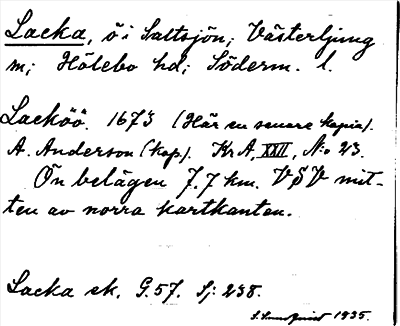 Lacka, ö i Saltsjön; Västerljung
m; Hölebo hd; Söderm. l.
Lacköö. 1673 (Här en senare kopia).
A. Anderson (kop). KrA, XXII, No 23.
Ön belägen 7.7 km. VSV mit-
ten av norra kartkanten.
Lacka ek. G.57. Sj: 238.
1935.